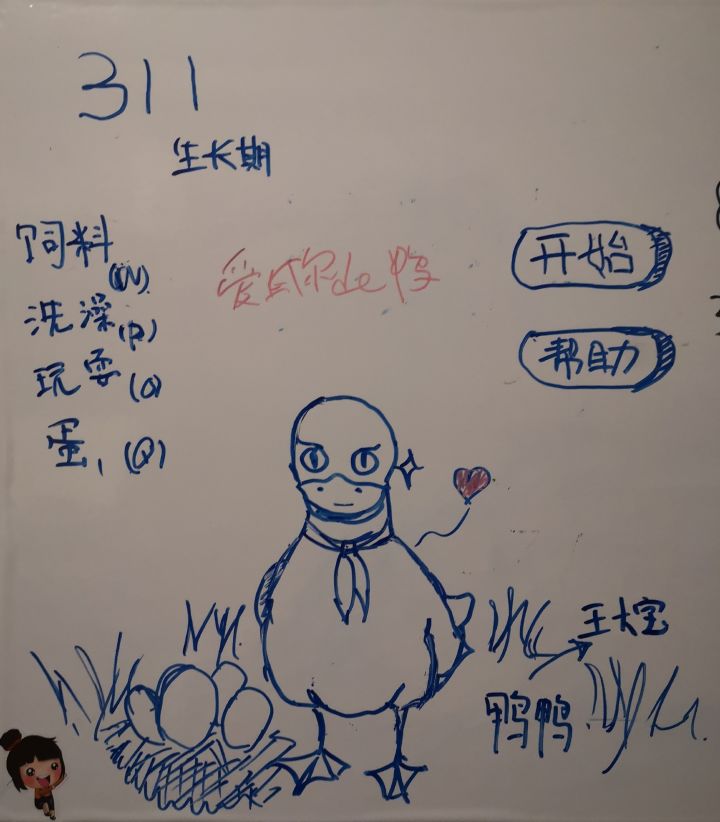 311
生长期
饲料
(W)
爱

开始
洗澡(P)
帮助
玩耍(O)
蛋,(Q)
王大宝
鸭鸭